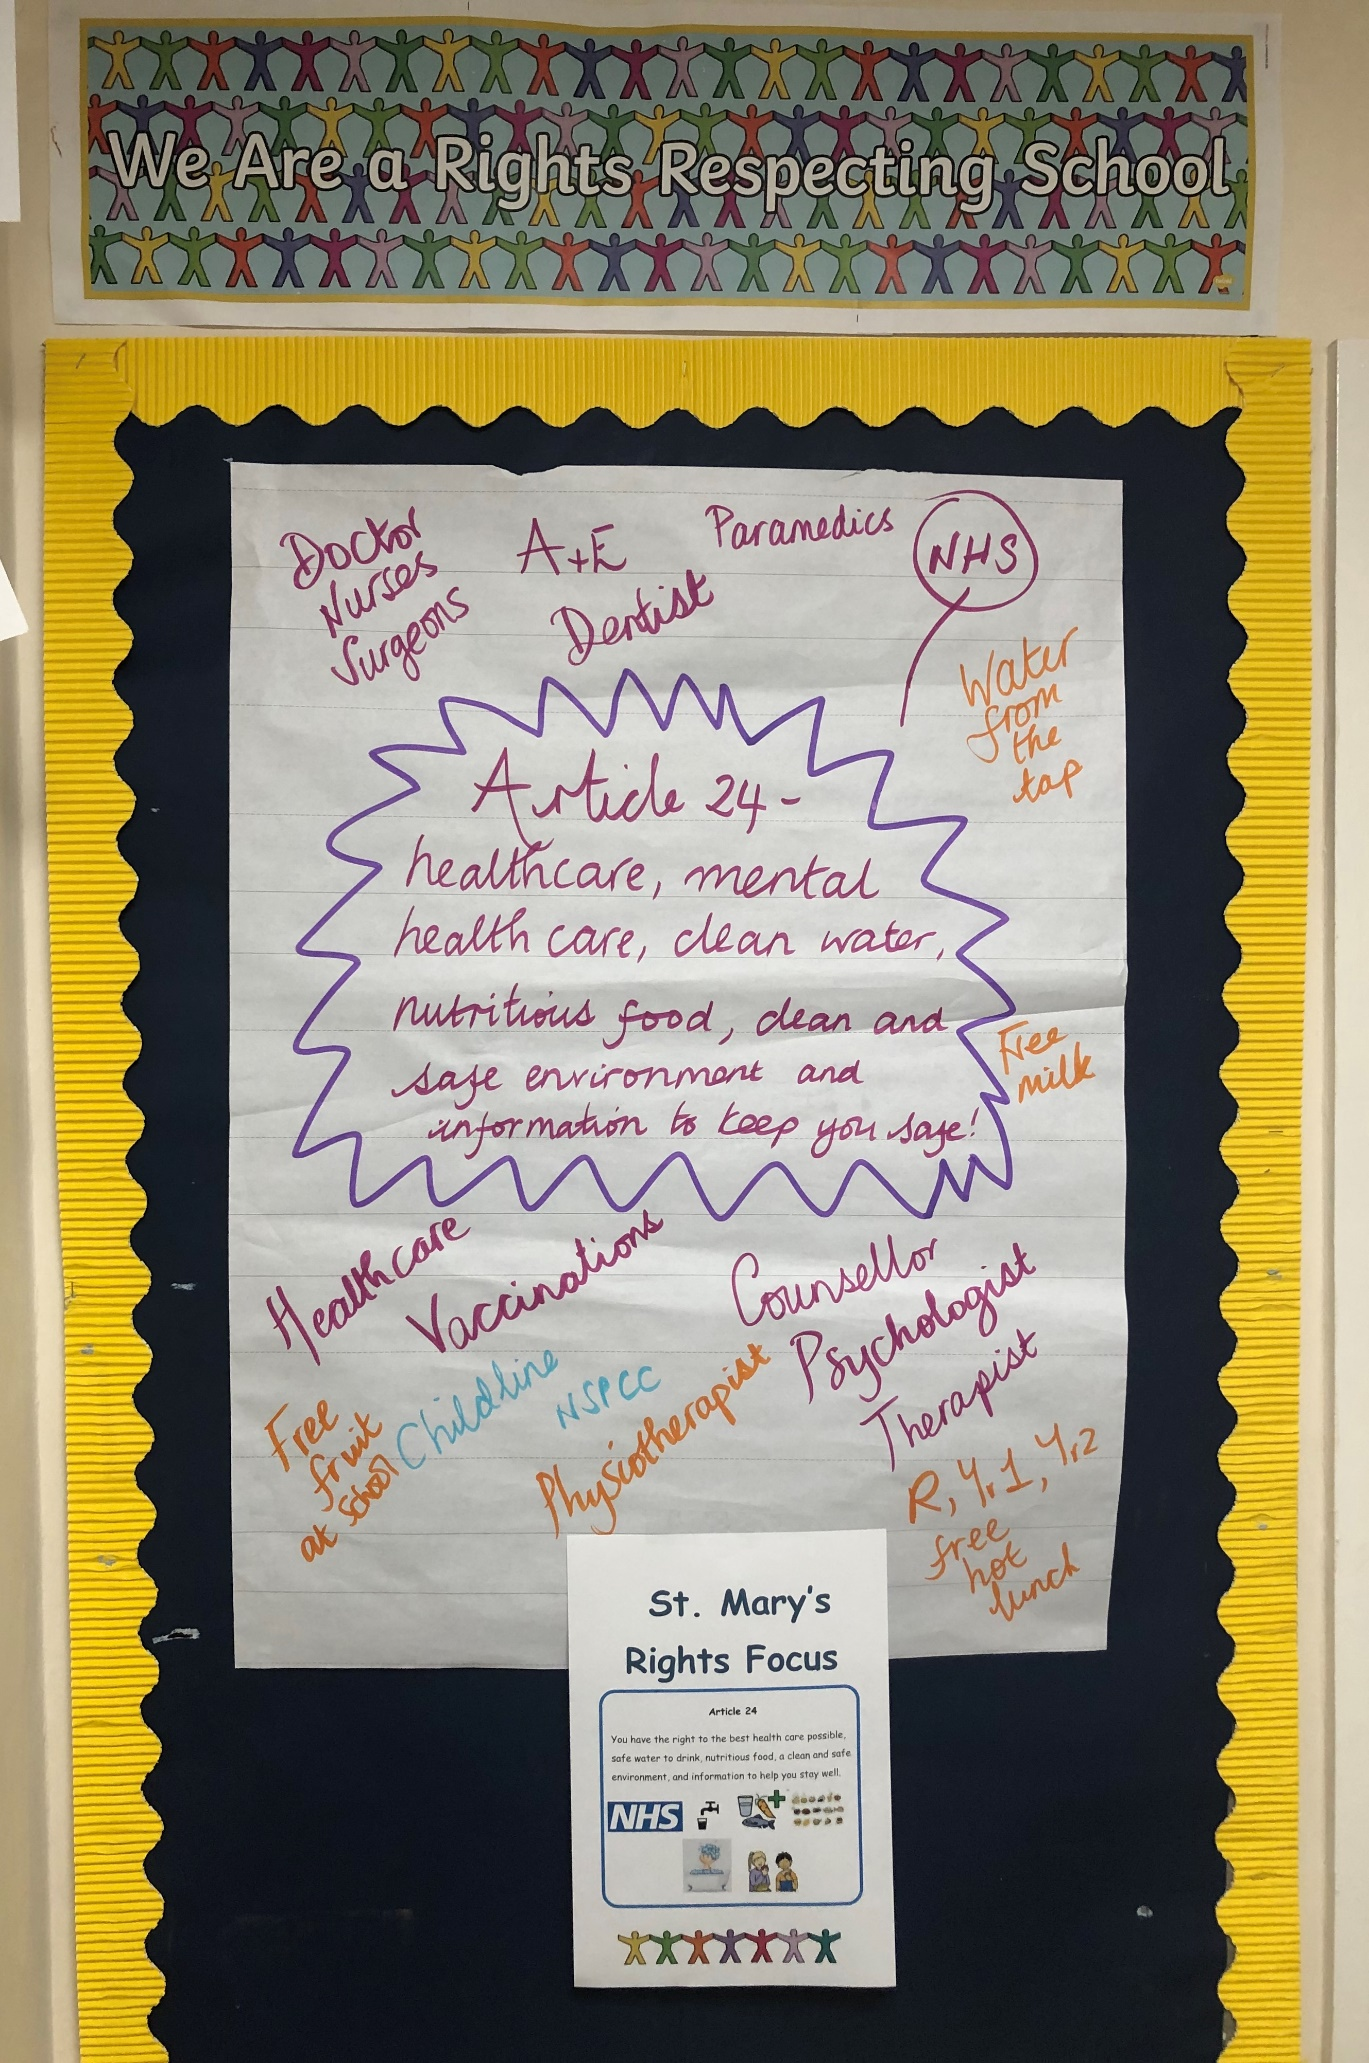 We Are a Rights Respecting School
Doctor
Nurses
Surgeons
A+E
Dentist
Paramedics
NHS
Water
from
the
tap
Article 24-
healthcare, mental
health care, clean water,
nutritious food, clean and
safe environment and
information to keep you safe!
Free
milk
Healthcare
Vaccinations
Counsellor
Psychologist
Therapist
Childline
NSPCC
Physiotherapist
Free
fruit
at school
R, Yr1, Yr2
free
hot
lunch
St. Mary's
Rights Focus
Article 24
You have the right to the best health care possible,
safe water to drink, nutritious food, a clean and safe
environment, and information to help you stay well.
NHS